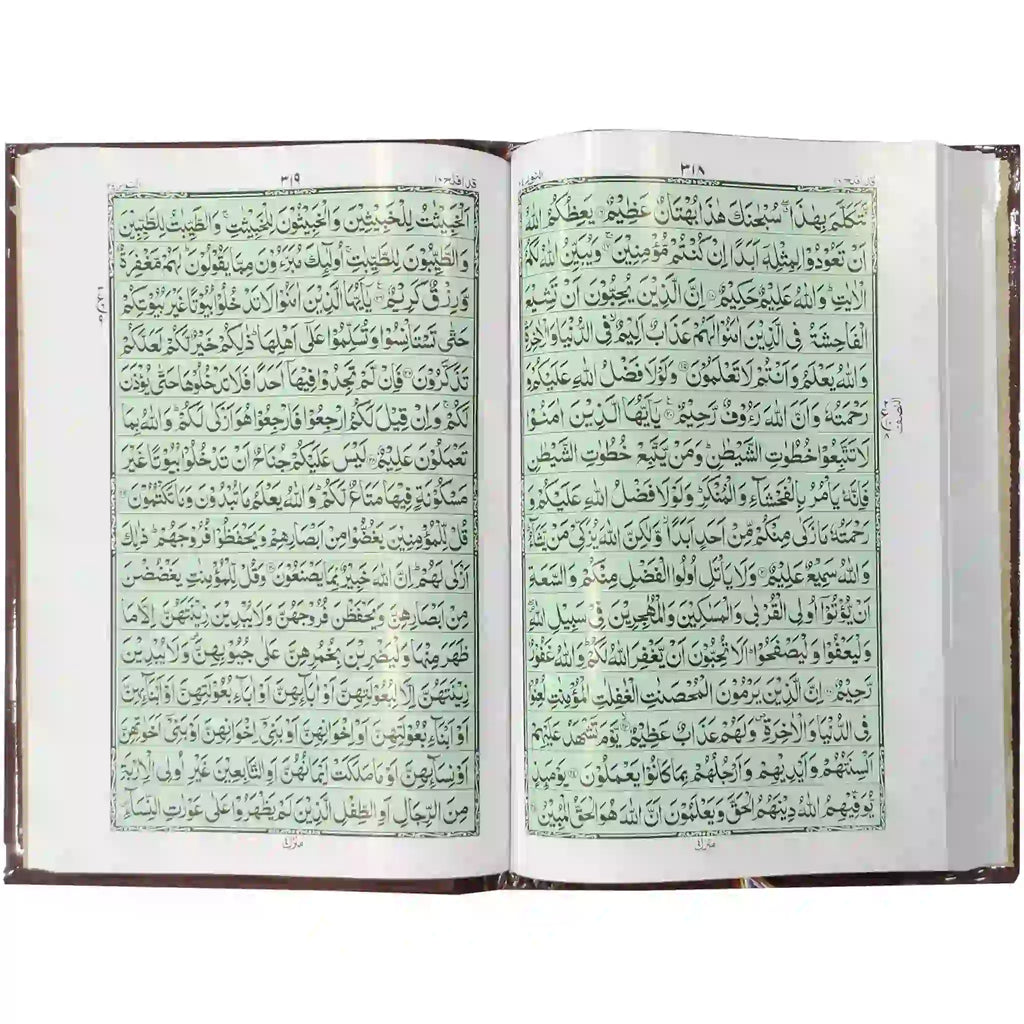 النور ٢٤ ٣١٨ قد افلح ١٨
نَّتَكَلَّمَ بِهٰذَا ۖ سُبْحٰنَكَ هٰذَا بُهْتَانٌ عَظِيْمٌ ۝۱۶ يَعِظُكُمُ اللّٰهُ
اَنْ تَعُوْدُوْا لِمِثْلِهٖۤ اَبَدًا اِنْ كُنْتُمْ مُّؤْمِنِيْنَ ۝۱۷ وَيُبَيِّنُ اللّٰهُ لَكُمُ
الْاٰيٰتِ ؕ وَاللّٰهُ عَلِيْمٌ حَكِيْمٌ ۝۱۸ اِنَّ الَّذِيْنَ يُحِبُّوْنَ اَنْ تَشِيْعَ
الْفَاحِشَةُ فِى الَّذِيْنَ اٰمَنُوْا لَهُمْ عَذَابٌ اَلِيْمٌ ۙ فِى الدُّنْيَا وَالْاٰخِرَةِ ؕ
وَاللّٰهُ يَعْلَمُ وَاَنْتُمْ لَا تَعْلَمُوْنَ ۝۱۹ وَلَوْلَا فَضْلُ اللّٰهِ عَلَيْكُمْ وَ
رَحْمَتُهٗ وَاَنَّ اللّٰهَ رَءُوْفٌ رَّحِيْمٌ ۝۲۰ يٰۤاَيُّهَا الَّذِيْنَ اٰمَنُوْا
لَا تَتَّبِعُوْا خُطُوٰتِ الشَّيْطٰنِ ؕ وَمَنْ يَّتَّبِعْ خُطُوٰتِ الشَّيْطٰنِ
فَاِنَّهٗ يَاْمُرُ بِالْفَحْشَآءِ وَالْمُنْكَرِ ؕ وَلَوْلَا فَضْلُ اللّٰهِ عَلَيْكُمْ وَ
رَحْمَتُهٗ مَا زَكٰى مِنْكُمْ مِّنْ اَحَدٍ اَبَدًا ۙ وَّلٰكِنَّ اللّٰهَ يُزَكِّىْ مَنْ يَّشَآءُ ؕ
وَاللّٰهُ سَمِيْعٌ عَلِيْمٌ ۝۲۱ وَلَا يَاْتَلِ اُولُوا الْفَضْلِ مِنْكُمْ وَالسَّعَةِ
اَنْ يُّؤْتُوْۤا اُولِى الْقُرْبٰى وَالْمَسٰكِيْنَ وَالْمُهٰجِرِيْنَ فِىْ سَبِيْلِ اللّٰهِ ۖ
وَلْيَعْفُوْا وَلْيَصْفَحُوْا ؕ اَلَا تُحِبُّوْنَ اَنْ يَّغْفِرَ اللّٰهُ لَكُمْ ؕ وَاللّٰهُ غَفُوْرٌ
رَّحِيْمٌ ۝۲۲ اِنَّ الَّذِيْنَ يَرْمُوْنَ الْمُحْصَنٰتِ الْغٰفِلٰتِ الْمُؤْمِنٰتِ لُعِنُوْا
فِى الدُّنْيَا وَالْاٰخِرَةِ ۪ وَلَهُمْ عَذَابٌ عَظِيْمٌ ۝۲۳ يَّوْمَ تَشْهَدُ عَلَيْهِمْ
اَلْسِنَتُهُمْ وَاَيْدِيْهِمْ وَاَرْجُلُهُمْ بِمَا كَانُوْا يَعْمَلُوْنَ ۝۲۴ يَوْمَئِذٍ
يُّوَفِّيْهِمُ اللّٰهُ دِيْنَهُمُ الْحَقَّ وَيَعْلَمُوْنَ اَنَّ اللّٰهَ هُوَ الْحَقُّ الْمُبِيْنُ ۝۲۵
النصف
منزل ٤
قد افلح ١٨ ٣١٩ النور ٢٤
اَلْخَبِيْثٰتُ لِلْخَبِيْثِيْنَ وَالْخَبِيْثُوْنَ لِلْخَبِيْثٰتِ ۚ وَالطَّيِّبٰتُ لِلطَّيِّبِيْنَ
وَالطَّيِّبُوْنَ لِلطَّيِّبٰتِ ۚ اُولٰٓئِكَ مُبَرَّءُوْنَ مِمَّا يَقُوْلُوْنَ ؕ لَهُمْ مَّغْفِرَةٌ
وَّرِزْقٌ كَرِيْمٌ ۝۲۶ يٰۤاَيُّهَا الَّذِيْنَ اٰمَنُوْا لَا تَدْخُلُوْا بُيُوْتًا غَيْرَ بُيُوْتِكُمْ
حَتّٰى تَسْتَاْنِسُوْا وَتُسَلِّمُوْا عَلٰٓى اَهْلِهَا ؕ ذٰلِكُمْ خَيْرٌ لَّكُمْ لَعَلَّكُمْ
تَذَكَّرُوْنَ ۝۲۷ فَاِنْ لَّمْ تَجِدُوْا فِيْهَاۤ اَحَدًا فَلَا تَدْخُلُوْهَا حَتّٰى يُؤْذَنَ
لَكُمْ ۚ وَاِنْ قِيْلَ لَكُمُ ارْجِعُوْا فَارْجِعُوْا هُوَ اَزْكٰى لَكُمْ ؕ وَاللّٰهُ بِمَا
تَعْمَلُوْنَ عَلِيْمٌ ۝۲۸ لَيْسَ عَلَيْكُمْ جُنَاحٌ اَنْ تَدْخُلُوْا بُيُوْتًا غَيْرَ
مَسْكُوْنَةٍ فِيْهَا مَتَاعٌ لَّكُمْ ؕ وَاللّٰهُ يَعْلَمُ مَا تُبْدُوْنَ وَمَا تَكْتُمُوْنَ ۝۲۹
قُلْ لِّلْمُؤْمِنِيْنَ يَغُضُّوْا مِنْ اَبْصَارِهِمْ وَيَحْفَظُوْا فُرُوْجَهُمْ ؕ ذٰلِكَ
اَزْكٰى لَهُمْ ؕ اِنَّ اللّٰهَ خَبِيْرٌۢ بِمَا يَصْنَعُوْنَ ۝۳۰ وَقُلْ لِّلْمُؤْمِنٰتِ يَغْضُضْنَ
مِنْ اَبْصَارِهِنَّ وَيَحْفَظْنَ فُرُوْجَهُنَّ وَلَا يُبْدِيْنَ زِيْنَتَهُنَّ اِلَّا مَا
ظَهَرَ مِنْهَا وَلْيَضْرِبْنَ بِخُمُرِهِنَّ عَلٰى جُيُوْبِهِنَّ ۪ وَلَا يُبْدِيْنَ
زِيْنَتَهُنَّ اِلَّا لِبُعُوْلَتِهِنَّ اَوْ اٰبَآئِهِنَّ اَوْ اٰبَآءِ بُعُوْلَتِهِنَّ اَوْ اَبْنَآئِهِنَّ
اَوْ اَبْنَآءِ بُعُوْلَتِهِنَّ اَوْ اِخْوَانِهِنَّ اَوْ بَنِىْۤ اِخْوَانِهِنَّ اَوْ بَنِىْۤ اَخَوٰتِهِنَّ
اَوْ نِسَآئِهِنَّ اَوْ مَا مَلَكَتْ اَيْمَانُهُنَّ اَوِ التّٰبِعِيْنَ غَيْرِ اُولِى الْاِرْبَةِ
مِنَ الرِّجَالِ اَوِ الطِّفْلِ الَّذِيْنَ لَمْ يَظْهَرُوْا عَلٰى عَوْرٰتِ النِّسَآءِ
منزل ٤